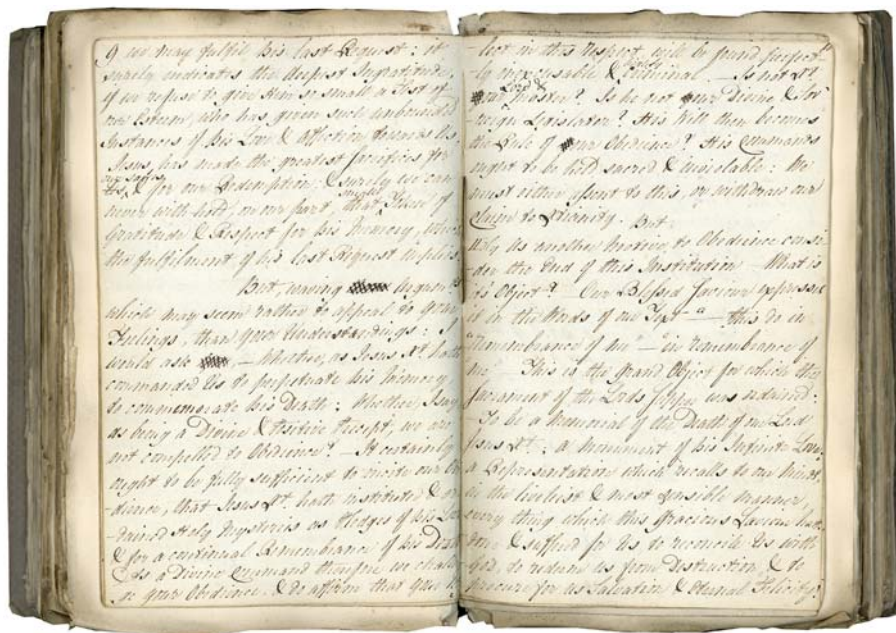 9 we may fulfil his last Request: it
surely indicates the deepest Ingratitude,
if we refuse to give Him so small a Test of
our Esteem, who has given such unbounded
Instances of his Love & Affection towards Us.
Jesus has made the greatest sacrifices for
our sakes
Us, & for our Redemption: & surely we can
never with-hold, on our part, that Tribute of
Gratitude & Respect for his Memory, which
the fulfilment of his last Request implies.
But, waving Argumts
which may seem rather to appeal to your
Feelings, than your Understandings: I
would ask, — Whether, as Jesus Xt hath
commanded Us to perpetuate his Memory,
to commemorate his Death: Whether, I say,
as being a Divine & Positive Precept, we are
not compelled to Obedience? — It certainly
ought to be fully sufficient to excite our Obe
-dience, that Jesus Xt. hath instituted & or
-dained Holy Mysteries as Pledges of his Love
& for a continual Remembrance of his Death
As a Divine Command therefore we
your Obedience, & do affirm that your
-lect in this respect, will be found
-ly inexcusable & criminal. — Is not Xt
Lord &
our Master? Is he not our Divine & Sov
-reign Legislator? His Will then becomes
the Rule of our Obedience? His Commands
ought to be held sacred & inviolable: We
must either assent to this, or withdraw our
Claim to Xtianity. But
as another Motive to Obedience consi-
der the End of this Institution — What is
it's Object? — Our Blessed Saviour expresses
it in the Words of our Text — "— this do in
"remembrance of me" — "in remembrance of
me" This is the Grand Object for which this
Sacrament of the Lords Supper was ordained:
— To be a Memorial of the Death of our Lord
Jesus Xt.: a Monument of his Infinite Love:
a Representation which recalls to our Minds,
in the liveliest & most sensible manner,
every thing which this Gracious Saviour hath
done & suffered for Us to reconcile Us with
God, to redeem us from Destruction, & to
procure for us Salvation & Eternal Felicity.